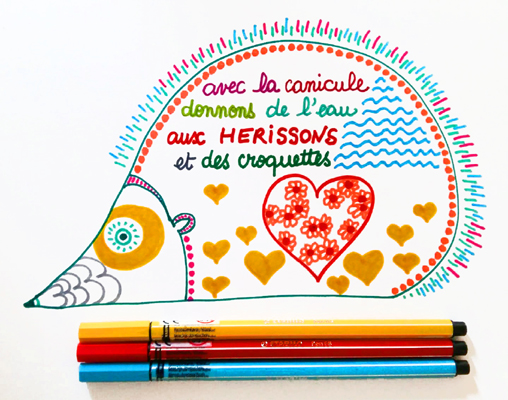 avec la canicule
donnons de l'eau
aux HERISSONS
et des croquettes